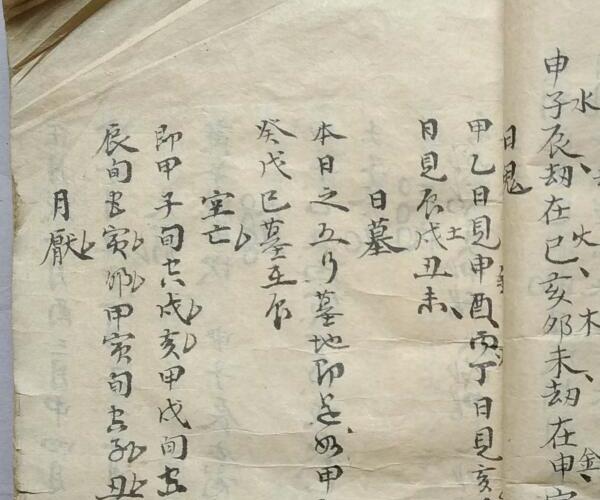 申子辰劫在巳、亥卯未劫在申
水 火 木 金
日鬼
甲乙日見申酉、丙丁日見亥
日見辰戌丑未、
土
日墓
本日之五行墓地即是、如甲
癸戊巳墓在辰
空亡
即甲子旬空戌亥甲戌旬空
辰旬空寅卯甲寅旬空子丑
月厭